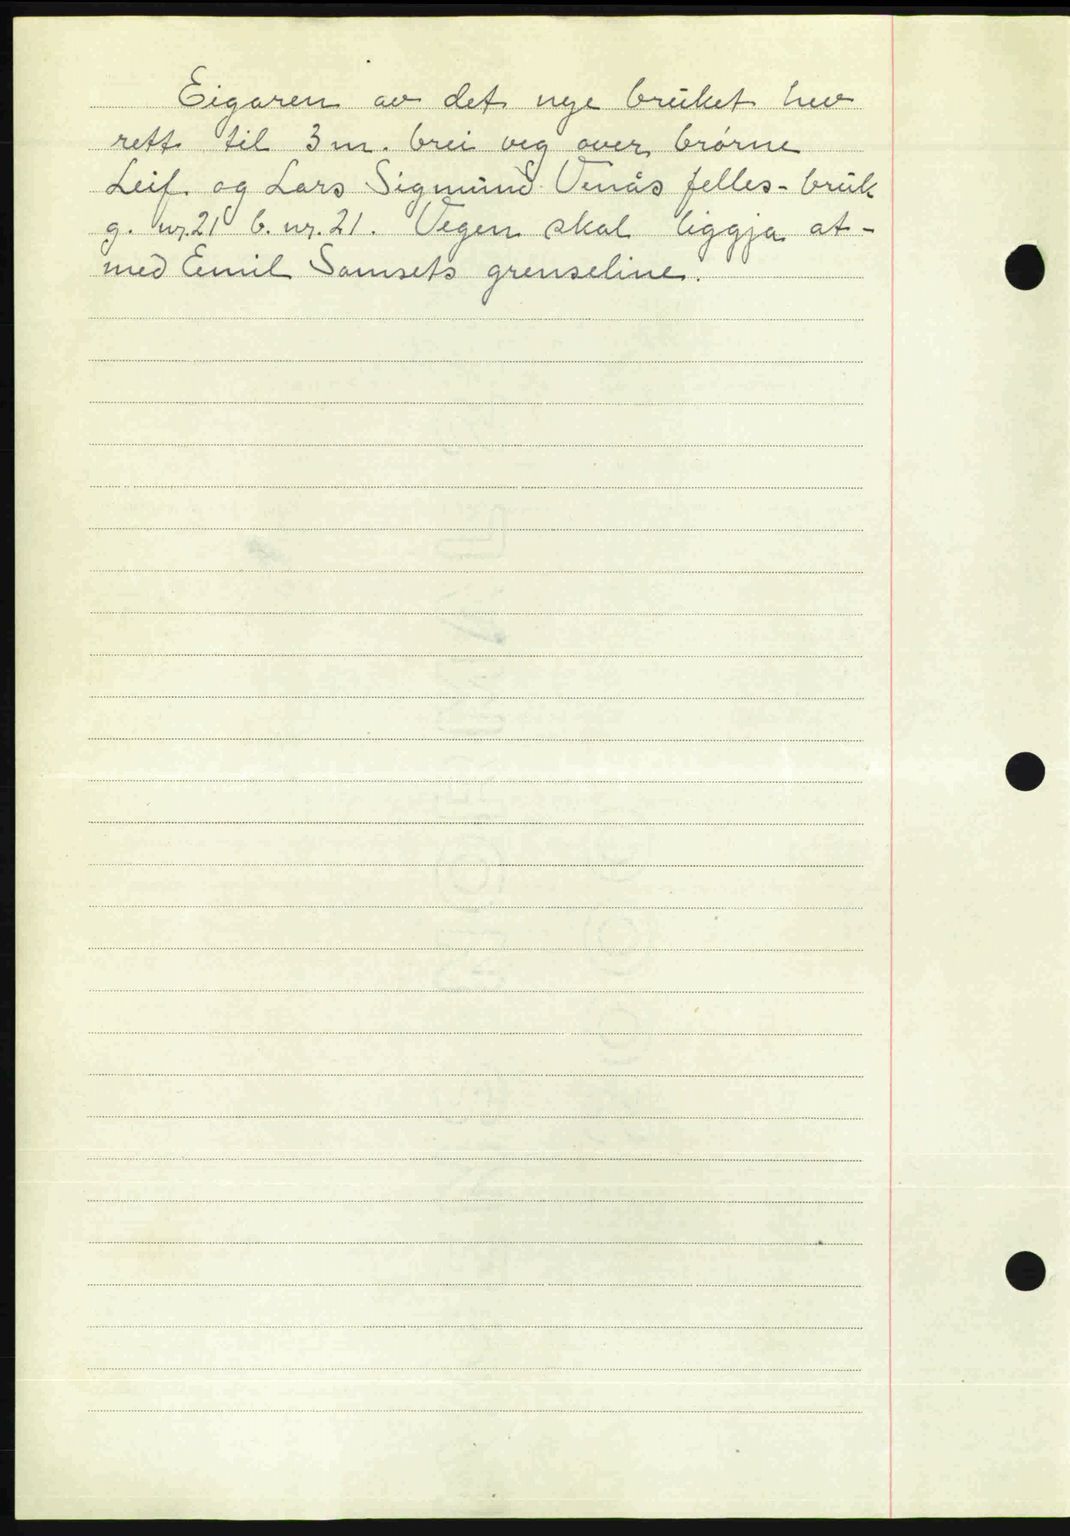 Eigaren av det nye bruket hev
rett til 3 m. brei veg over brørne
Leif og Lars Sigmund Venås felles-bruk
g. nr. 21 b. nr. 21. Vegen skal liggja at-
med Emil Samsets grenseline.